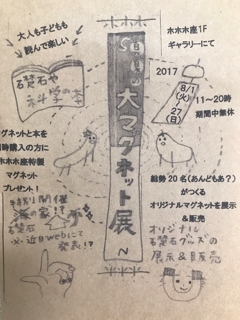 ホホホ
大人も子どもも
読んで楽しい
石ころや
科学の本
S
大マグネット展
N
ホホホ座1F
ギャラリーにて
2017
8/1
(火)
~
27
(日)
11~20時
期間中無休
マグネットと本を
同時購入の方に
ホホホ座特製
マグネット
プレゼント!
特別開催!
海の家!?
※近日webにて
発表!?
総勢20名(あんどもあ?)
がつくる
オリジナルマグネットを展示
&販売
オリジナル
石ころグッズの
展示&販売